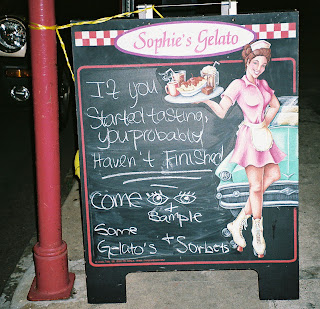 Sophie's Gelato
If you
Started tasting,
you probably
Haven't Finished
COME +
Sample
Some +
Gelato's Sorbets